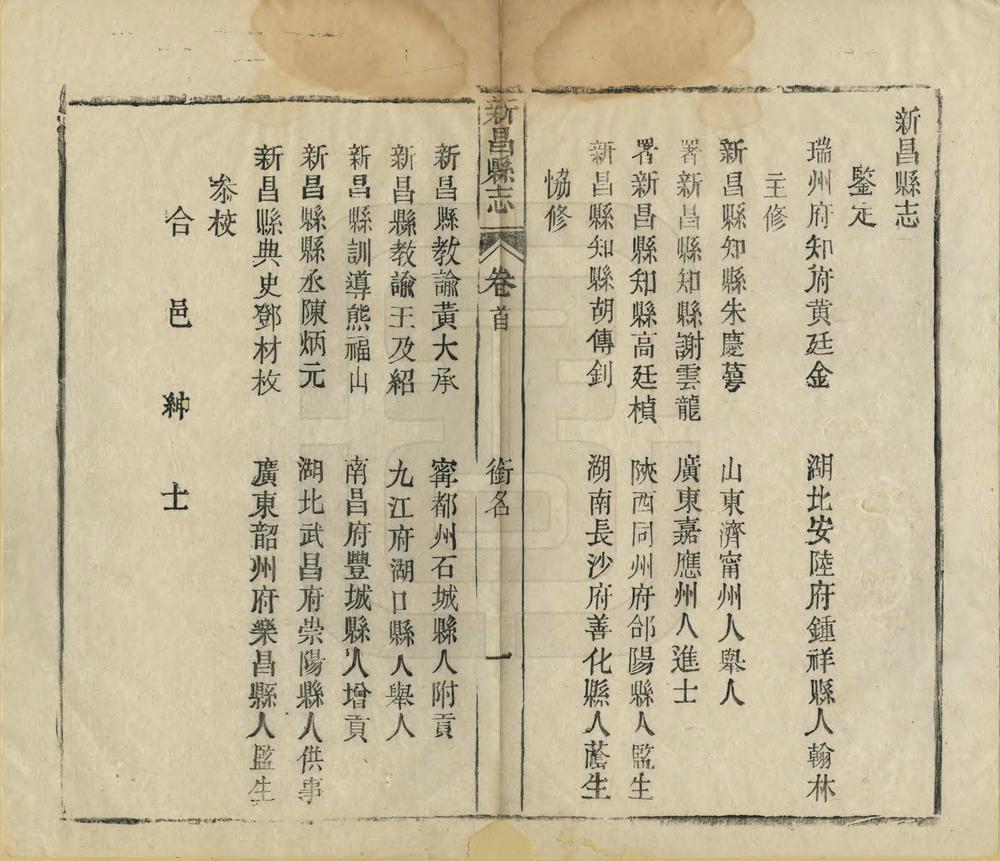 新昌縣志
鑒定
瑞州府知府黃廷金　湖北安陸府鍾祥縣人翰林
主修
新昌縣知縣朱慶萼　山東濟甯州人舉人
署新昌縣知縣謝雲龍　廣東嘉應州人進士
署新昌縣知縣高廷楨　陝西同州府郃陽縣人監生
新昌縣知縣胡傳釗　湖南長沙府善化縣人蔭生
恊修
新昌縣志　卷首　銜名　一
新昌縣教諭黃大承　甯都州石城縣人附貢
新昌縣教諭王及紹　九江府湖口縣人舉人
新昌縣訓導熊福山　南昌府豐城縣人增貢
新昌縣縣丞陳炳元　湖北武昌府崇陽縣人供事
新昌縣典史鄧材枚　廣東韶州府樂昌縣人監生
叅校
合邑紳士